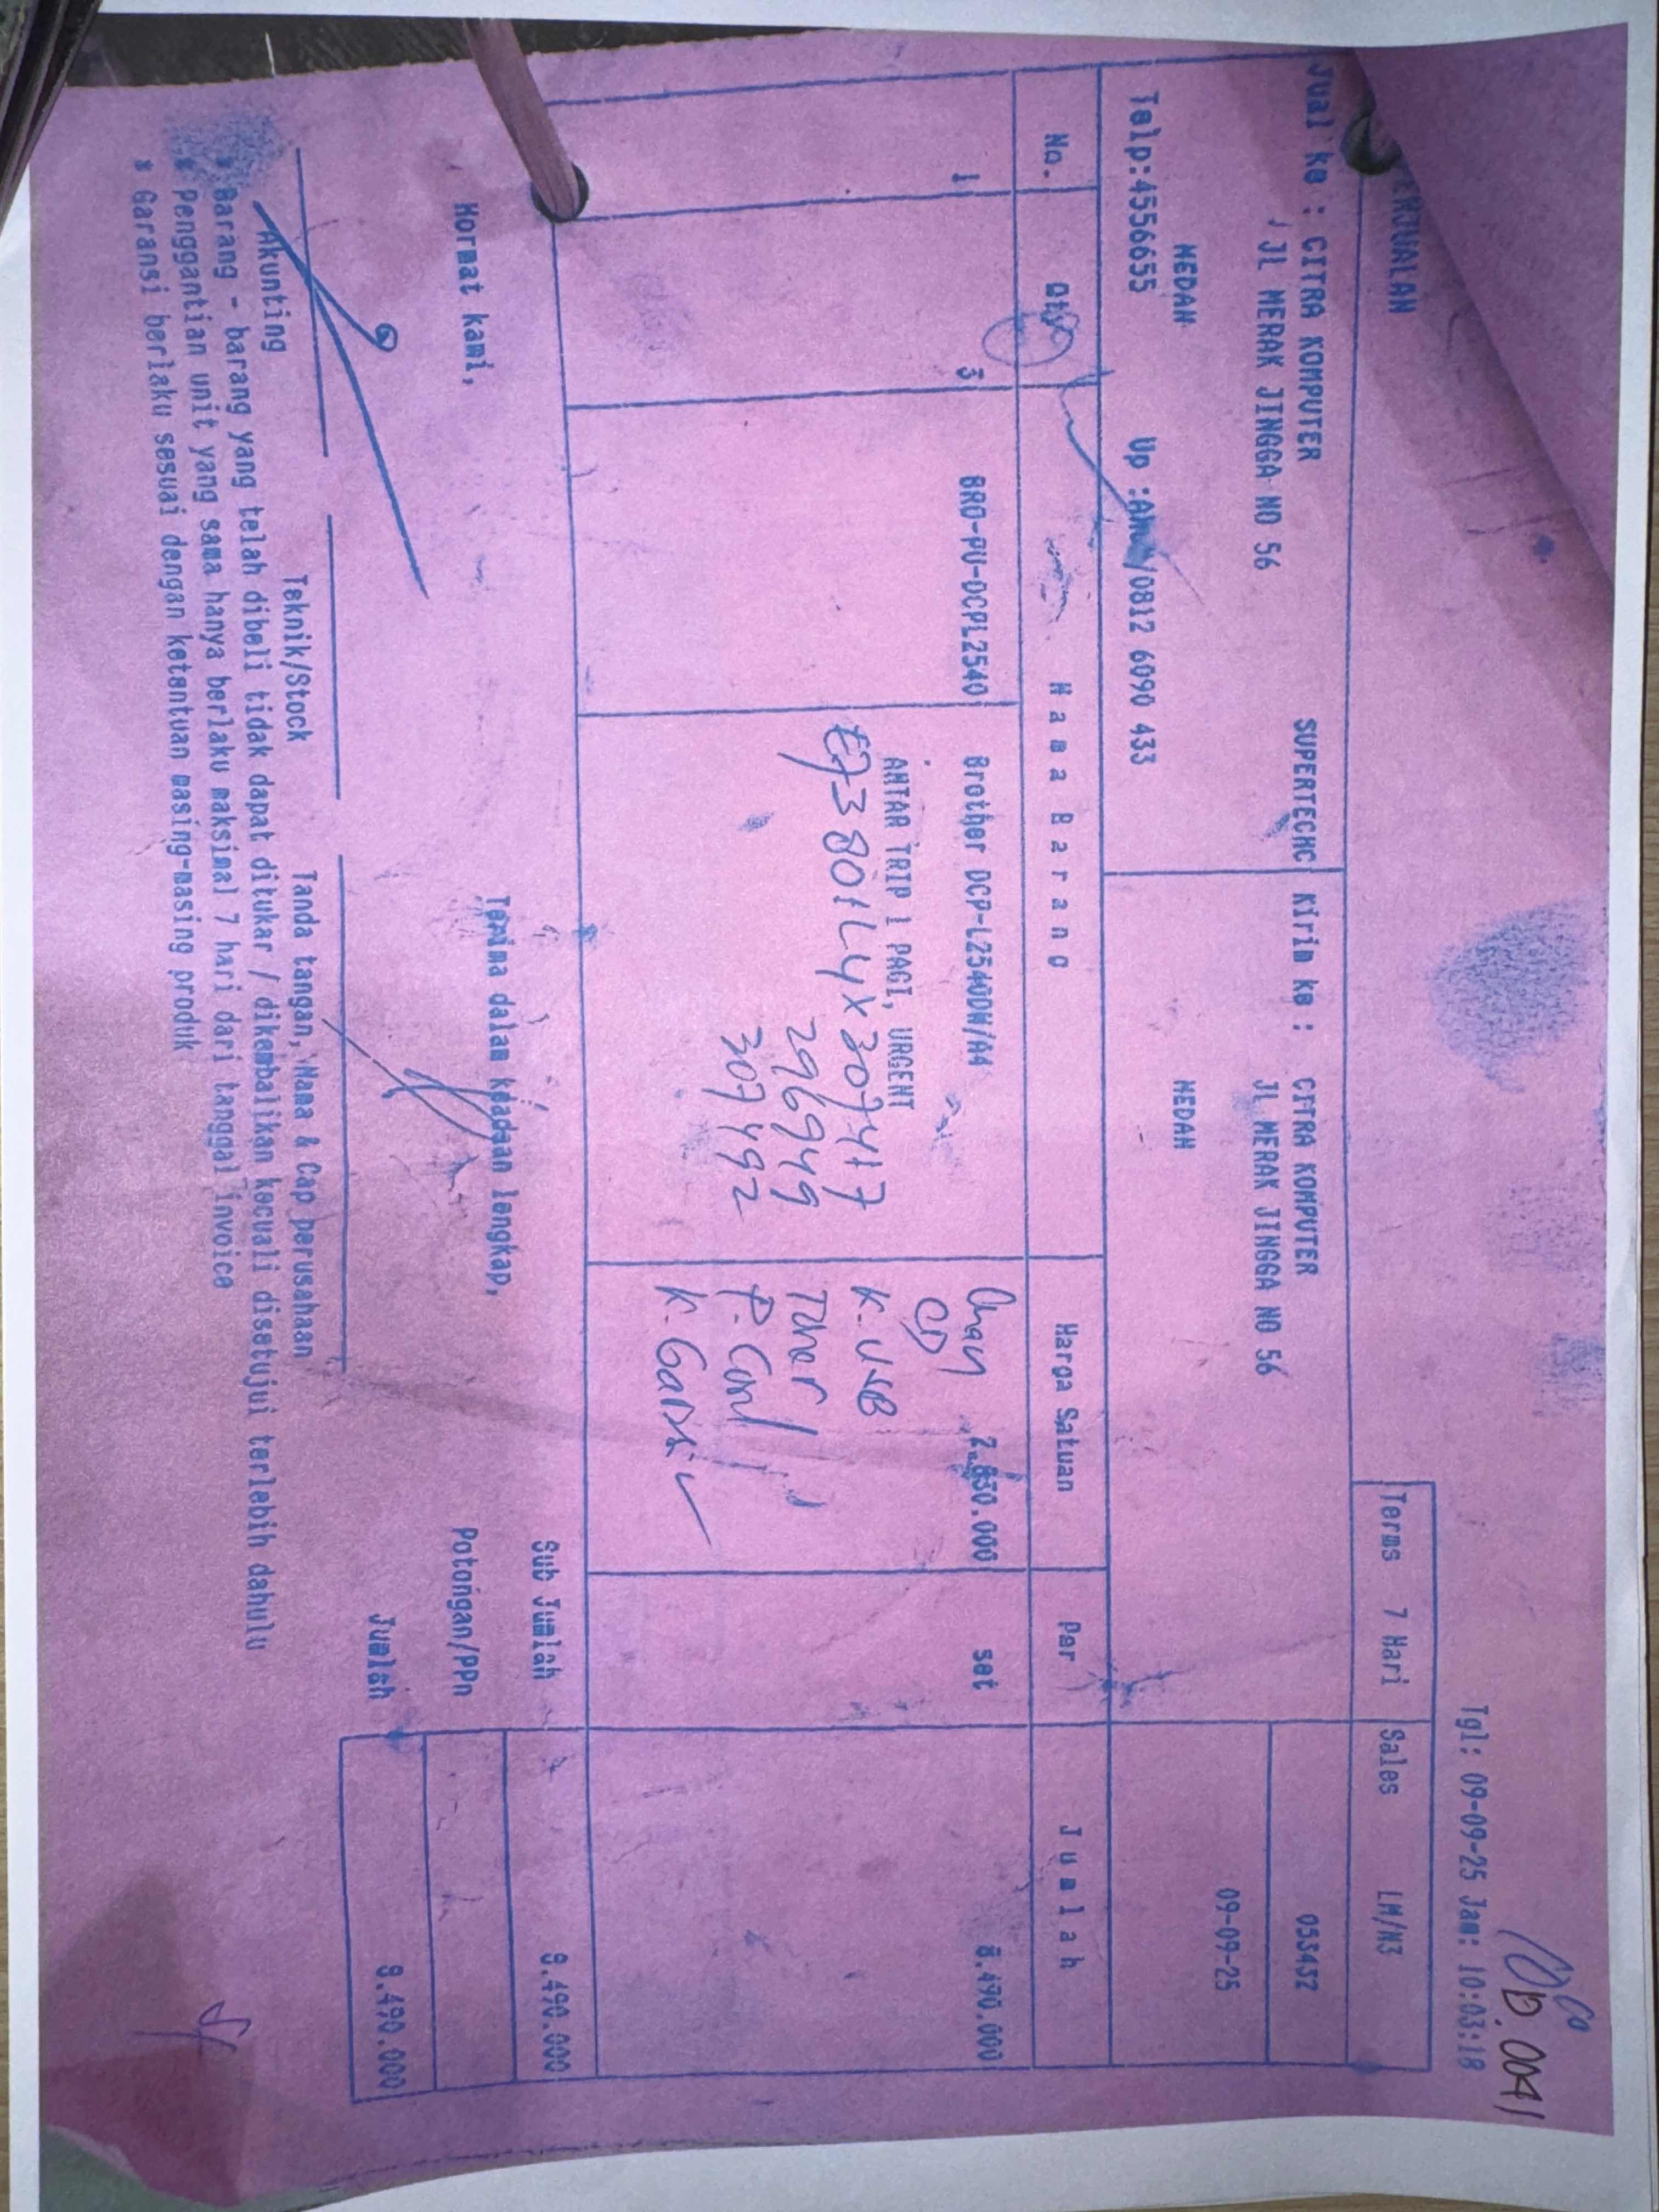 OD.0041
Tgl: 09-09-25 Jam: 10:03:18
Terms 7 Hari Sales LM/N3
Jual ke : CITRA KOMPUTER SUPERTECHC Kirim ke : CITRA KOMPUTER 053432
JL MERAK JINGGA NO 56 JL MERAK JINGGA NO 56
09-09-25
MEDAN MEDAN
Telp:4556655 Up : /0812 6090 433
No. Qty Nama Barang Harga Satuan Per Jumlah
1 3 BRO-PU-DCPL2540 Brother DCP-L2540DW/A4 2.830.000 set 8.490.000
ANTAR TRIP 1 PAGI, URGENT
CD
K. USB
307417
296949
Toner
307492
P. Cord
K. Garsi
Sub Jumlah 8.490.000
Hormat kami, Terima dalam keadaan lengkap,
Potongan/PPn
Jumlah 8.490.000
Akunting Teknik/Stock Tanda tangan, Nama & Cap perusahaan
* Barang - barang yang telah dibeli tidak dapat ditukar / dikembalikan kecuali disetujui terlebih dahulu
* Penggantian unit yang sama hanya berlaku maksimal 7 hari dari tanggal invoice
* Garansi berlaku sesuai dengan ketentuan masing-masing produk